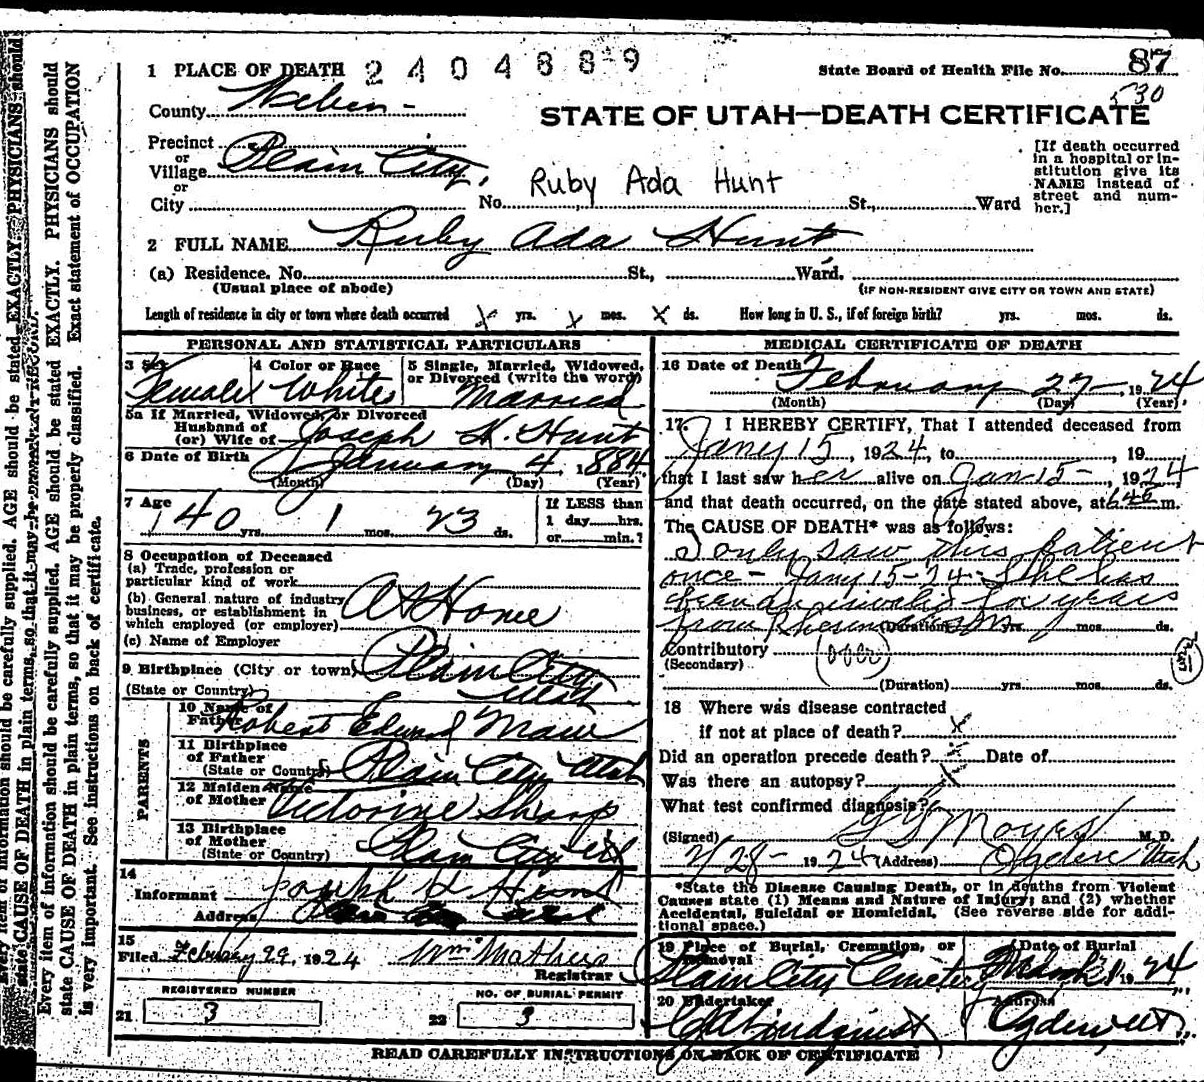 1 PLACE OF DEATH 2404889
State Board of Health File No. 87
530
County Weber
STATE OF UTAH—DEATH CERTIFICATE
Precinct
or
Village Plain City,
or
City
Ruby Ada Hunt
No. St., Ward
[If death occurred
in a hospital or in-
stitution give its
NAME instead of
street and num-
ber.]
2 FULL NAME Ruby Ada Hunt
(a) Residence. No. St., Ward.
(Usual place of abode) (IF NON-RESIDENT GIVE CITY OR TOWN AND STATE)
Length of residence in city or town where death occurred x yrs. x mos. x ds. How long in U. S., if of foreign birth? yrs. mos. ds.
PERSONAL AND STATISTICAL PARTICULARS
3 Sex 4 Color or Race 5 Single, Married, Widowed,
or Divorced (write the word)
Female White Married
5a If Married, Widowed, or Divorced
Husband of
(or) Wife of Joseph H. Hunt
6 Date of Birth January 4, 1884
(Month) (Day) (Year)
7 Age 40 yrs. 1 mos. 23 ds.
If LESS than
1 day hrs.
or min.?
8 Occupation of Deceased
(a) Trade, profession or
particular kind of work
(b) General nature of industry
business, or establishment in
which employed (or employer)
At Home
(c) Name of Employer
9 Birthplace (City or town) Plain City
(State or Country) Utah
PARENTS
10 Name of
Father Robert Edward Maw
11 Birthplace
of Father
(State or Country) Plain City Utah
12 Maiden Name
of Mother Victorine Sharp
13 Birthplace
of Mother
(State or Country) Plain City Ut
14
Informant Joseph H Hunt
Address
15
Filed February 29, 1924 Wm Mathers
Registrar
REGISTERED NUMBER NO. OF BURIAL PERMIT
21 3 22 3
MEDICAL CERTIFICATE OF DEATH
16 Date of Death February 27, 1924
(Month) (Day) (Year)
17 I HEREBY CERTIFY, That I attended deceased from
Jany 15, 1924, to , 19
that I last saw her alive on Jan 15, 1924
and that death occurred, on the date stated above, at 6 45 m.
The CAUSE OF DEATH* was as follows:
I only saw this patient
once - Jany 15-24. She has
been an invalid for years
from Rheumatism
(Duration) yrs. mos. ds.
Contributory
(Secondary)
(Duration) yrs. mos. ds.
18 Where was disease contracted
if not at place of death? x
Did an operation precede death? Date of
Was there an autopsy? x
What test confirmed diagnosis?
(Signed) Moyes M. D.
2/28 - 1924 (Address) Ogden Utah
*State the Disease Causing Death, or in deaths from Violent
Causes state (1) Means and Nature of Injury; and (2) whether
Accidental, Suicidal or Homicidal. (See reverse side for addi-
tional space.)
19 Place of Burial, Cremation, or
Removal
Date of Burial
Plain City Cemetery March 1 1924
20 Undertaker Address
Lindquist Ogden Ut.
READ CAREFULLY INSTRUCTIONS ON BACK OF CERTIFICATE
Every item of information should be carefully supplied. AGE should be stated EXACTLY. PHYSICIANS should
state CAUSE OF DEATH in plain terms, so that it may be properly classified. Exact statement of OCCUPATION
is very important. See instructions on back of certificate.